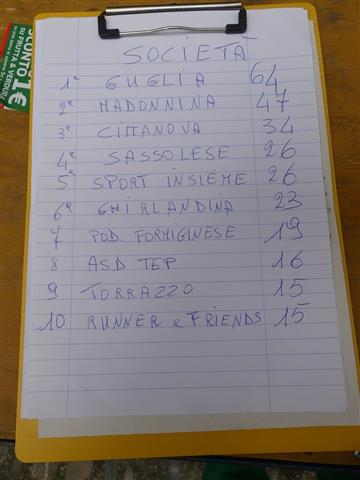 SCONTO 1€
SU FRUTTA & VERDURA
SOCIETÀ
1ª GUGLIA 64
2ª MADONNINA 47
3ª CITTANOVA 34
4ª SASSOLESE 26
5ª SPORT INSIEME 26
6ª GHIRLANDINA 23
7 POD. FORMIGINESE 19
8 ASD TEP 16
9 TORRAZZO 15
10 RUNNER e FRIENDS 15